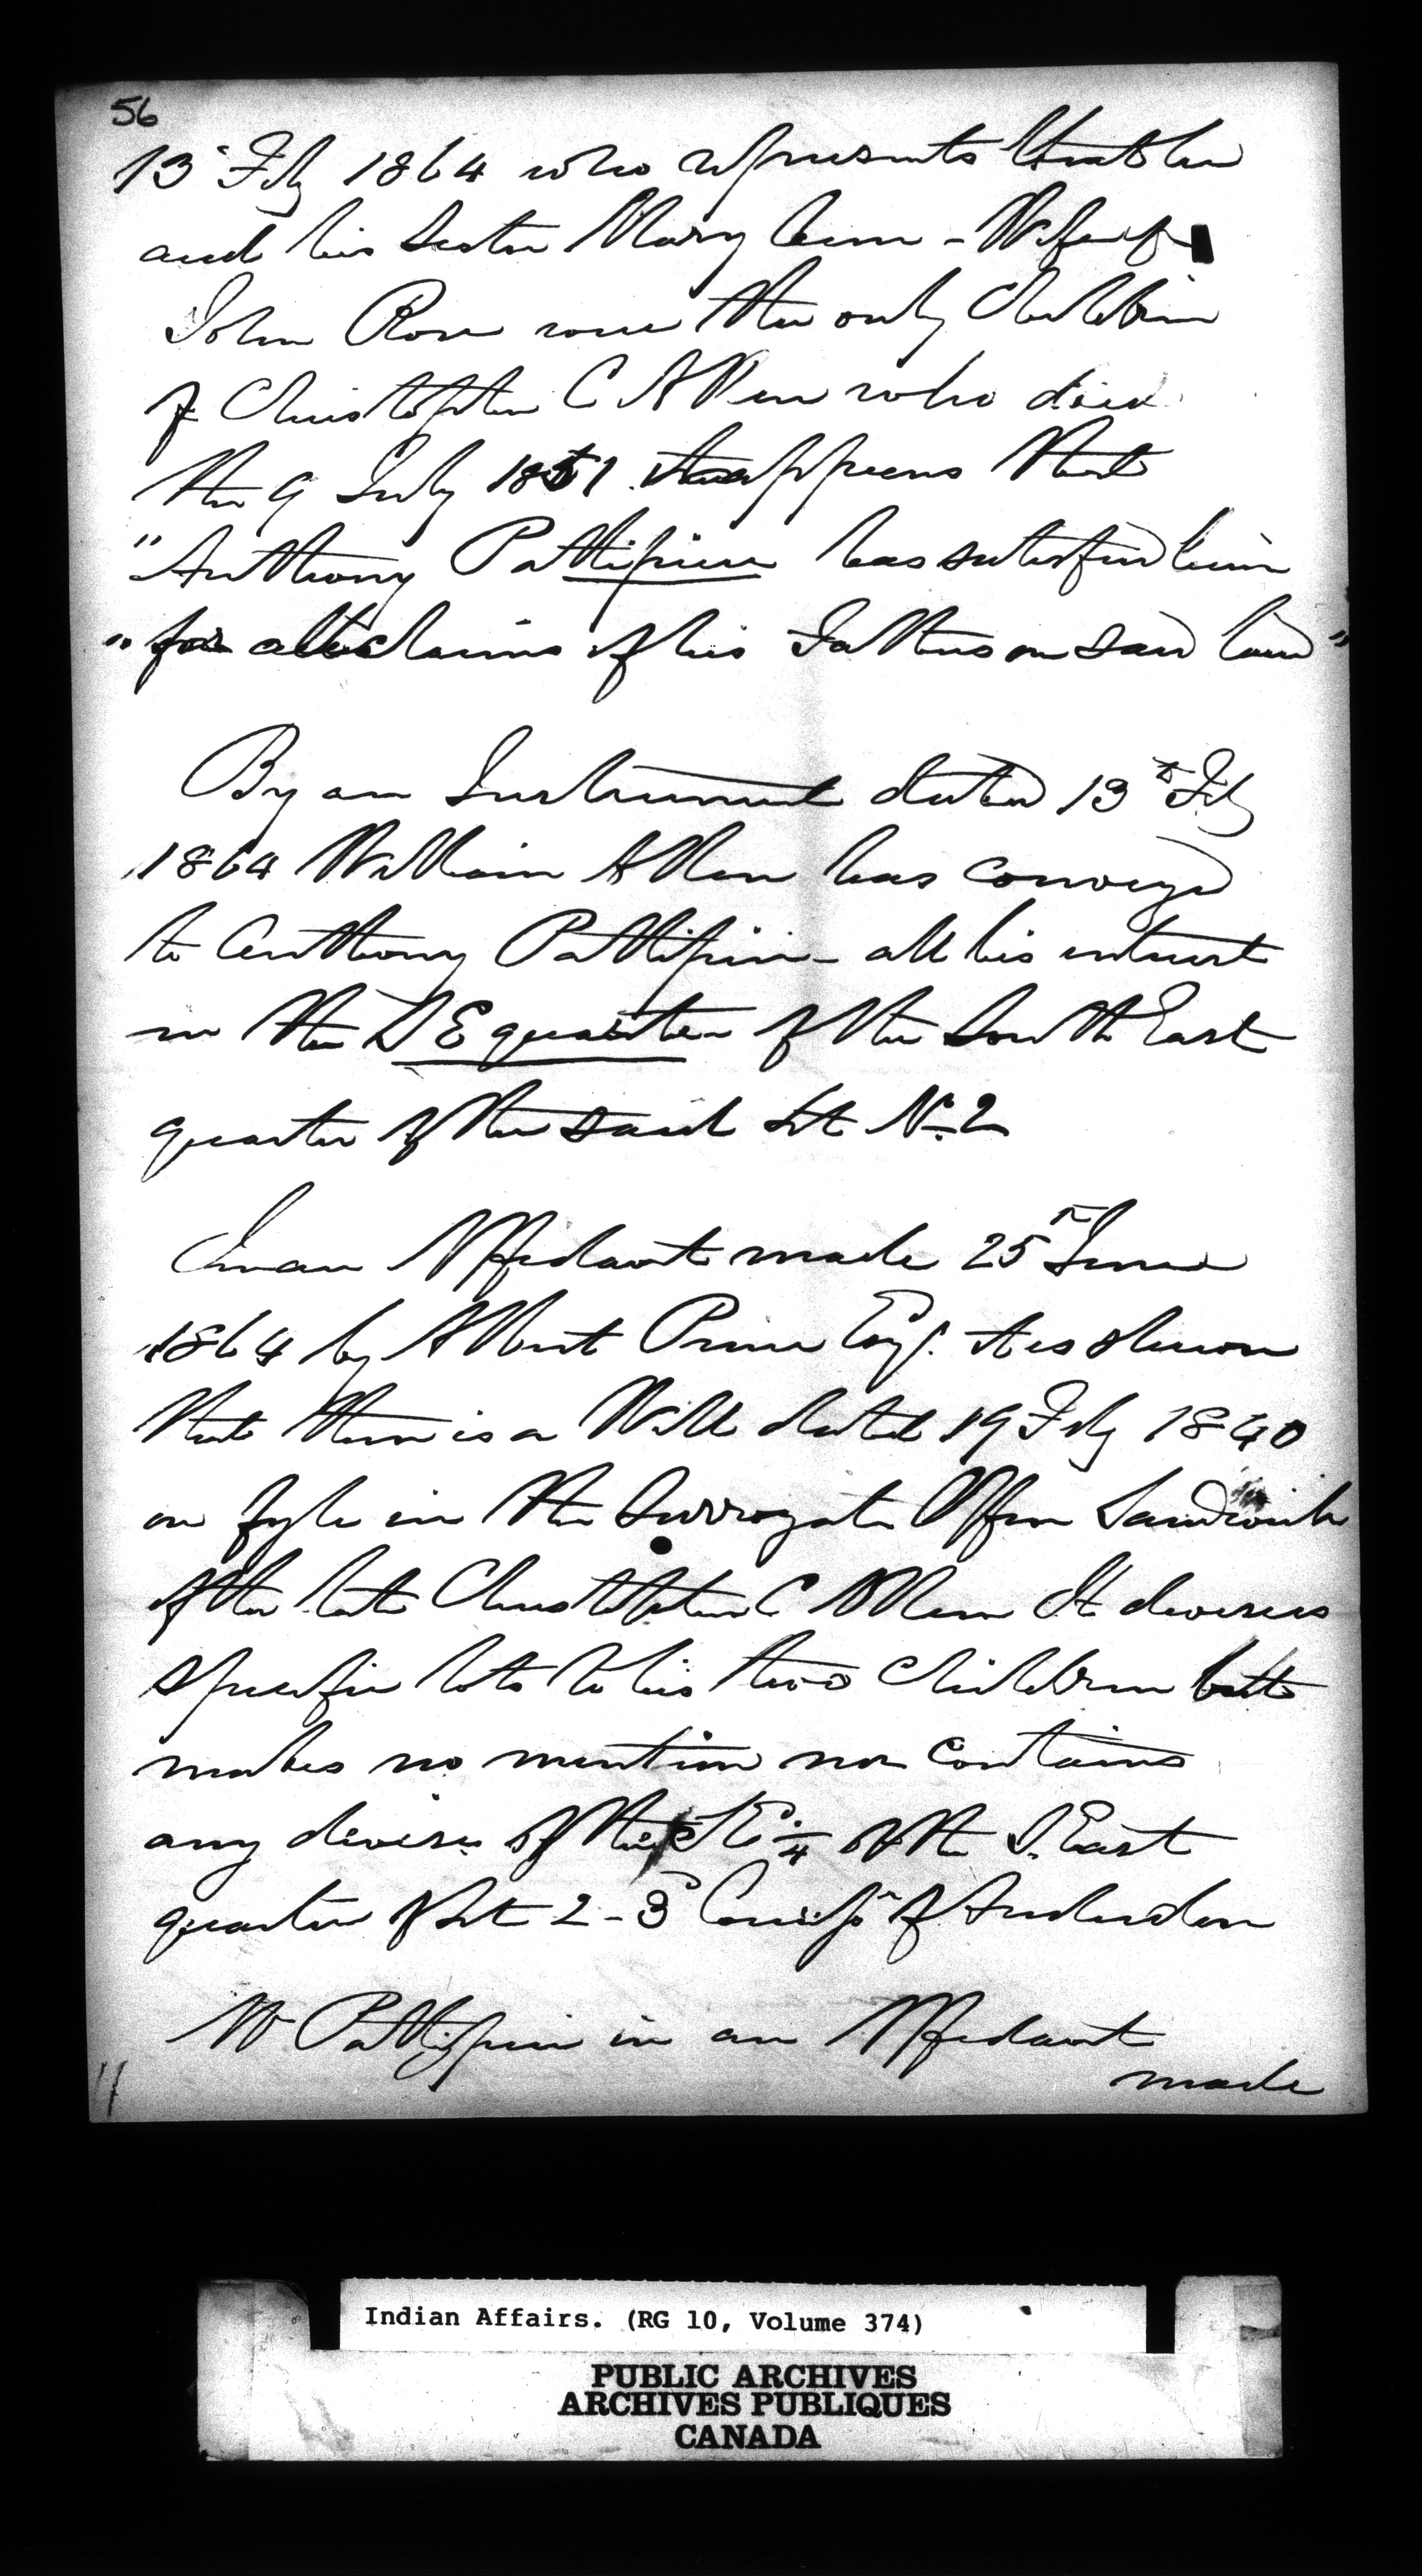 56
13 Feby 1864 who represents that he
and his sister Mary Ann - Wife of
John Rose were the only Children
of Christopher C Allen who died
the 9 July 1851. appears that
"Anthony Pettipiece has satisfied him
"for all claims of his Father on said land"
By an Instrument dated 13th Feby
1864 William Allen has conveyed
to Anthony Pettipiece - all his interest
in the S E quarter of the South East
quarter of the said Lot No. 2
In an Affidavit made 25th June
1864 by Albert Prince Esq. it is shewn
that there is a Will dated 19 Feby 1840
on fyle in the Surrogate Office Sandwich
of the late Christopher C Allen It devises
specific lots to his two children but
makes no mention nor contains
any devise of the S.E. 1/4 of the S. East
quarter of Lot 2 - 3d Concession of Anderdon
Mr Pettipiece in an Affidavit
made
Indian Affairs. (RG 10, Volume 374)
PUBLIC ARCHIVES
ARCHIVES PUBLIQUES
CANADA